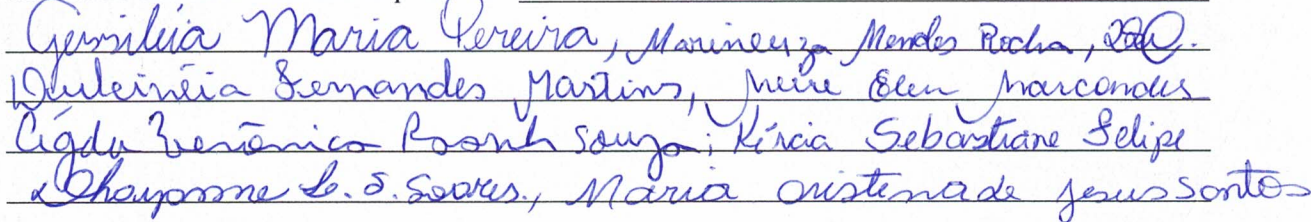 Gersiléia Maria Pereira, Marineuza Mendes Rocha,
Dulcinéia Fernandes Martins, Meire Elen Marcondes
Lígda Verônica Souza; Kércia Sebastiane Felipe
Dhayanne L. S. Soares., Maria cristena de Jesus Santos